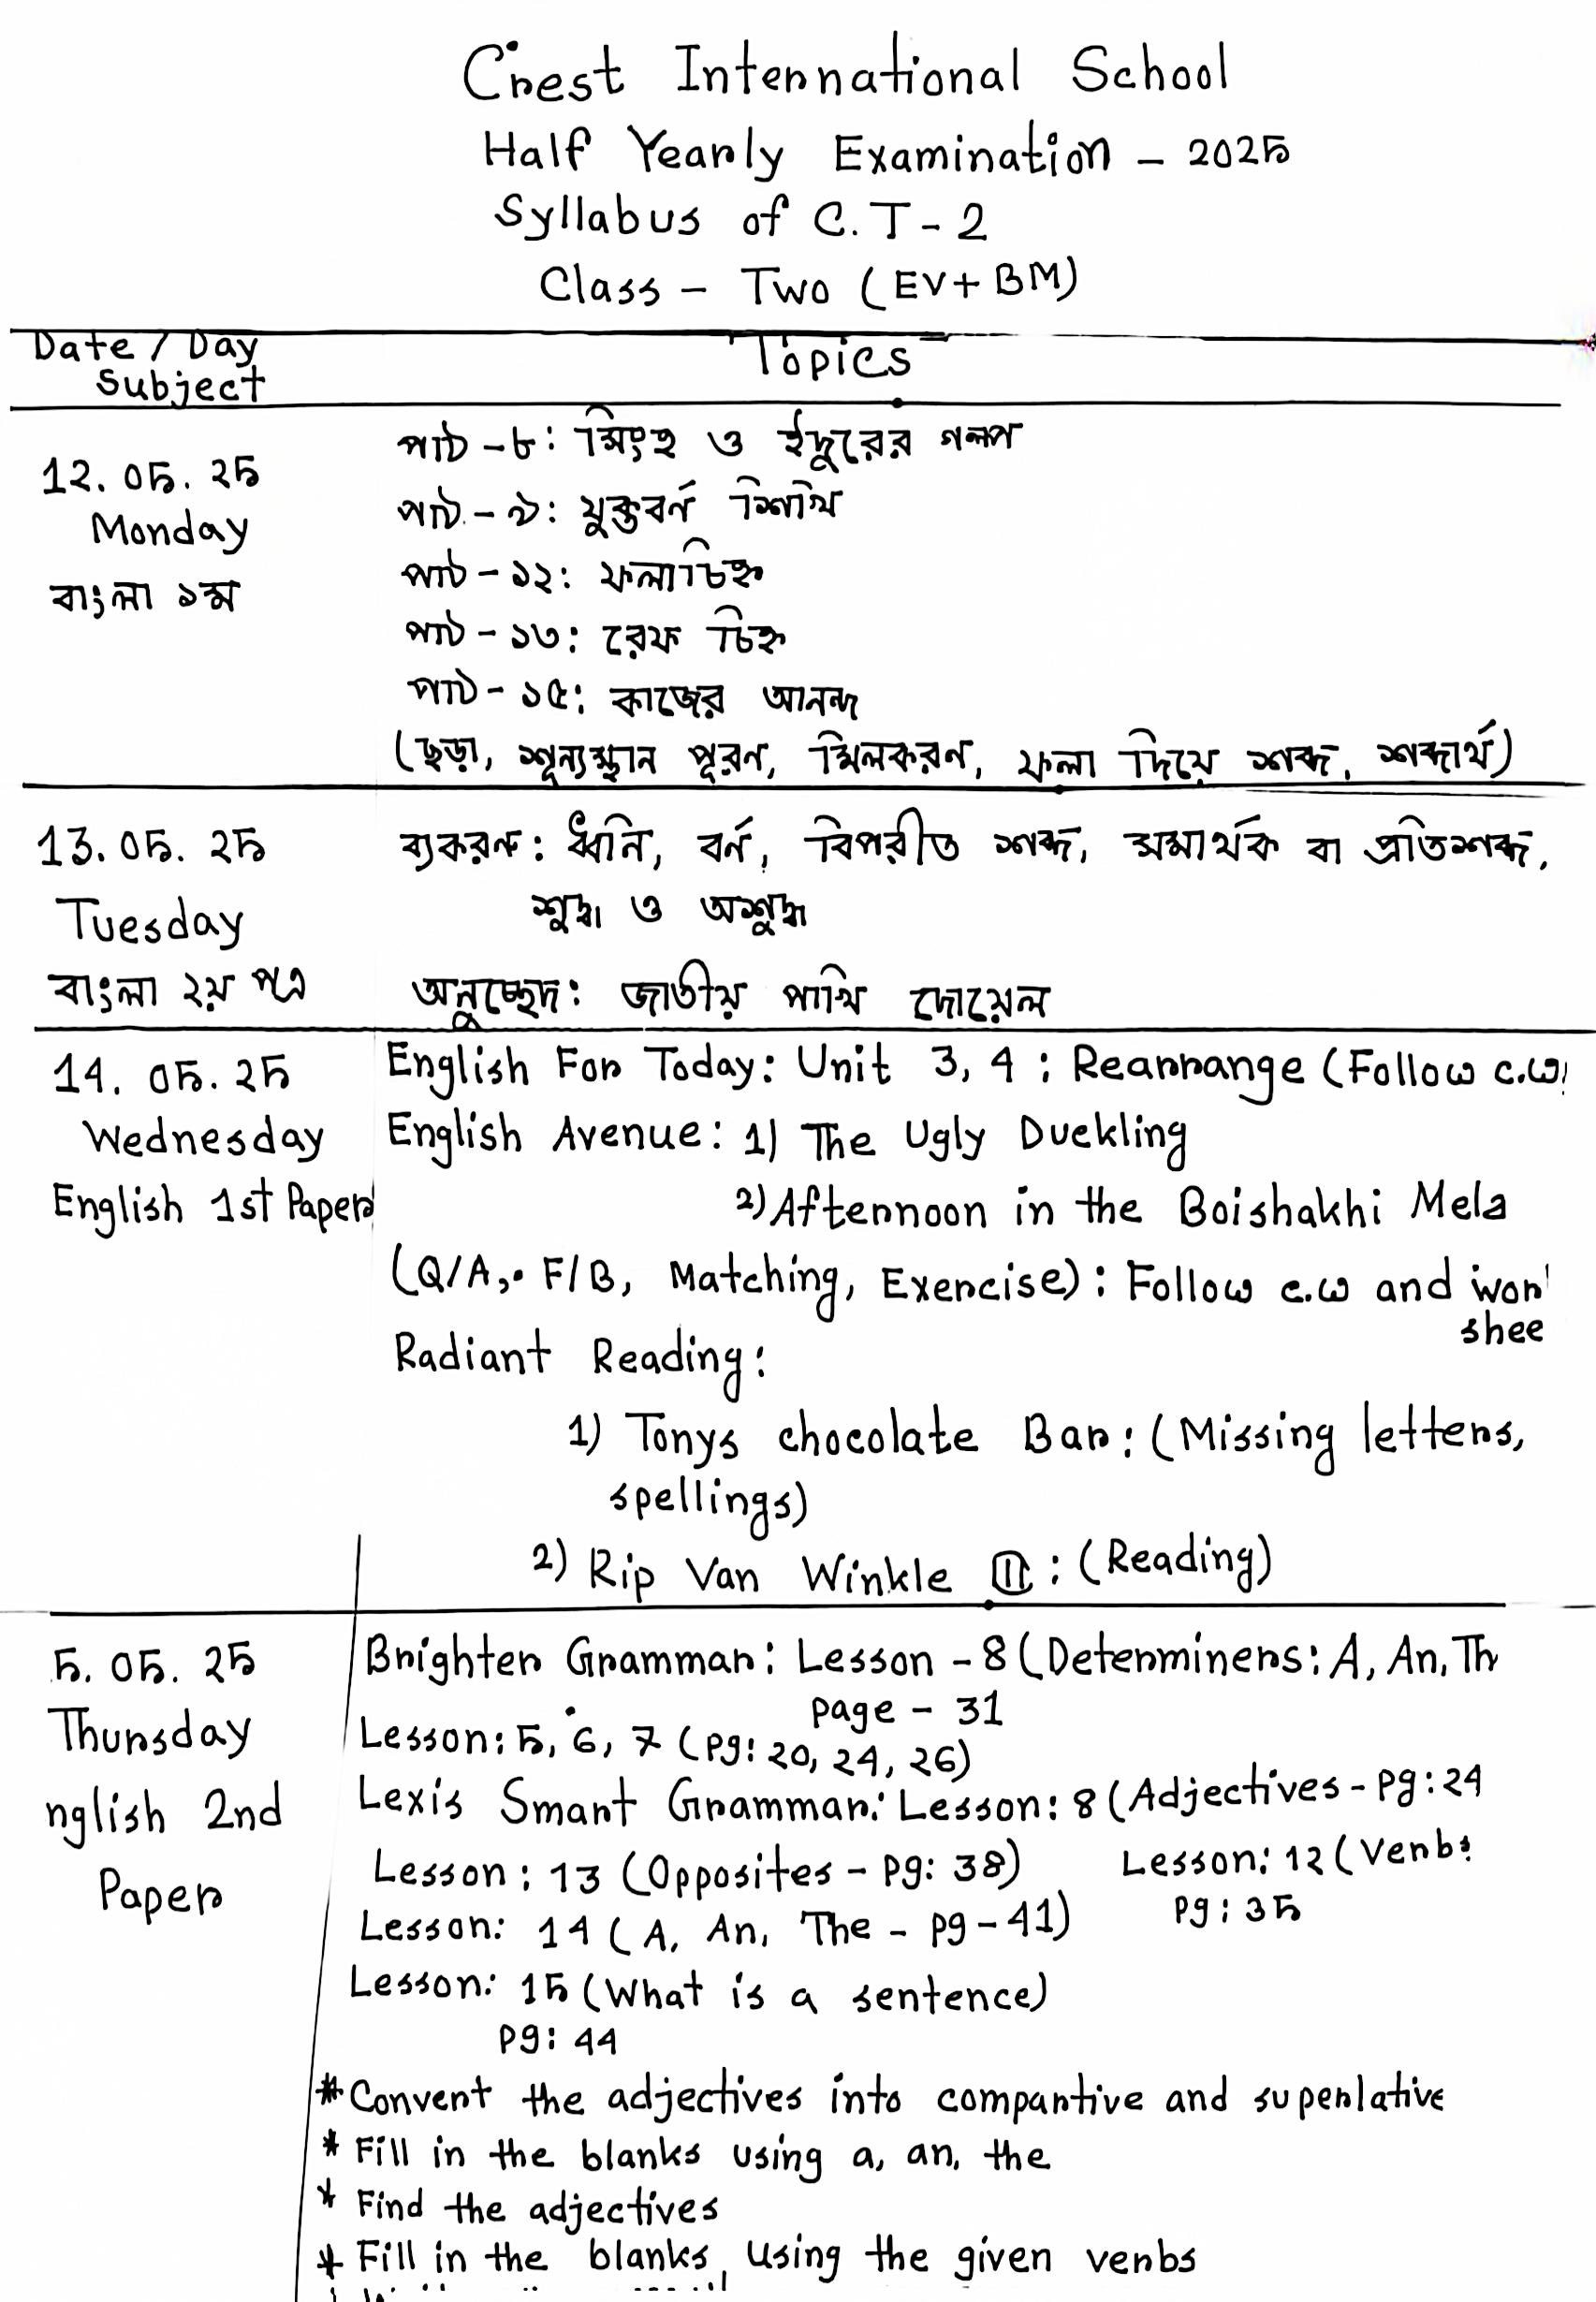 Crest International School
Half Yearly Examination - 2025
Syllabus of C.T - 2
Class - Two (EV+BM)
Date / Day
Subject
Topics
12.05.25
Monday
বাংলা ১ম
পাঠ -৮: সিংহ ও ইদুরের গল্প
পাঠ - ৯: যুক্তবর্ণ শিখি
পাঠ - ১২: ফলাচিহ্ন
পাঠ - ১৩: রেফ চিহ্ন
পাঠ - ১৫: কাজের আনন্দ
(ছড়া, শূন্যস্থান পূরণ, মিলকরণ, ফলা দিয়ে শব্দ, শব্দার্থ)
13.05.25
Tuesday
বাংলা ২য় পত্র
ব্যকরণ: ধ্বনি, বর্ণ, বিপরীত শব্দ, সমার্থক বা প্রতিশব্দ,
শুদ্ধ ও অশুদ্ধ
অনুচ্ছেদ: জাতীয় পাখি দোয়েল
14.05.25
Wednesday
English 1st Paper
English For Today: Unit 3, 4 : Rearrange (Follow c.w
English Avenue: 1) The Ugly Duckling
2) Afternoon in the Boishakhi Mela
(Q/A, F/B, Matching, Exercise) : Follow c.w and wor
shee
Radiant Reading:
1) Tonys chocolate Bar: (Missing letters,
spellings)
2) Rip Van Winkle II : (Reading)
5.05.25
Thursday
nglish 2nd
Paper
Brighter Grammar: Lesson - 8 (Determiners: A, An, Th
page - 31
Lesson: 5, 6, 7 (pg: 20, 24, 26)
Lexis Smart Grammar: Lesson: 8 (Adjectives - pg: 24
Lesson: 13 (Opposites - pg: 38) Lesson: 12 (Verbs
pg: 35
Lesson: 14 (A, An, The - pg - 41)
Lesson: 15 (What is a sentence)
pg: 44
* Convert the adjectives into compartive and superlative
* Fill in the blanks using a, an, the
* Find the adjectives
* Fill in the blanks, using the given verbs